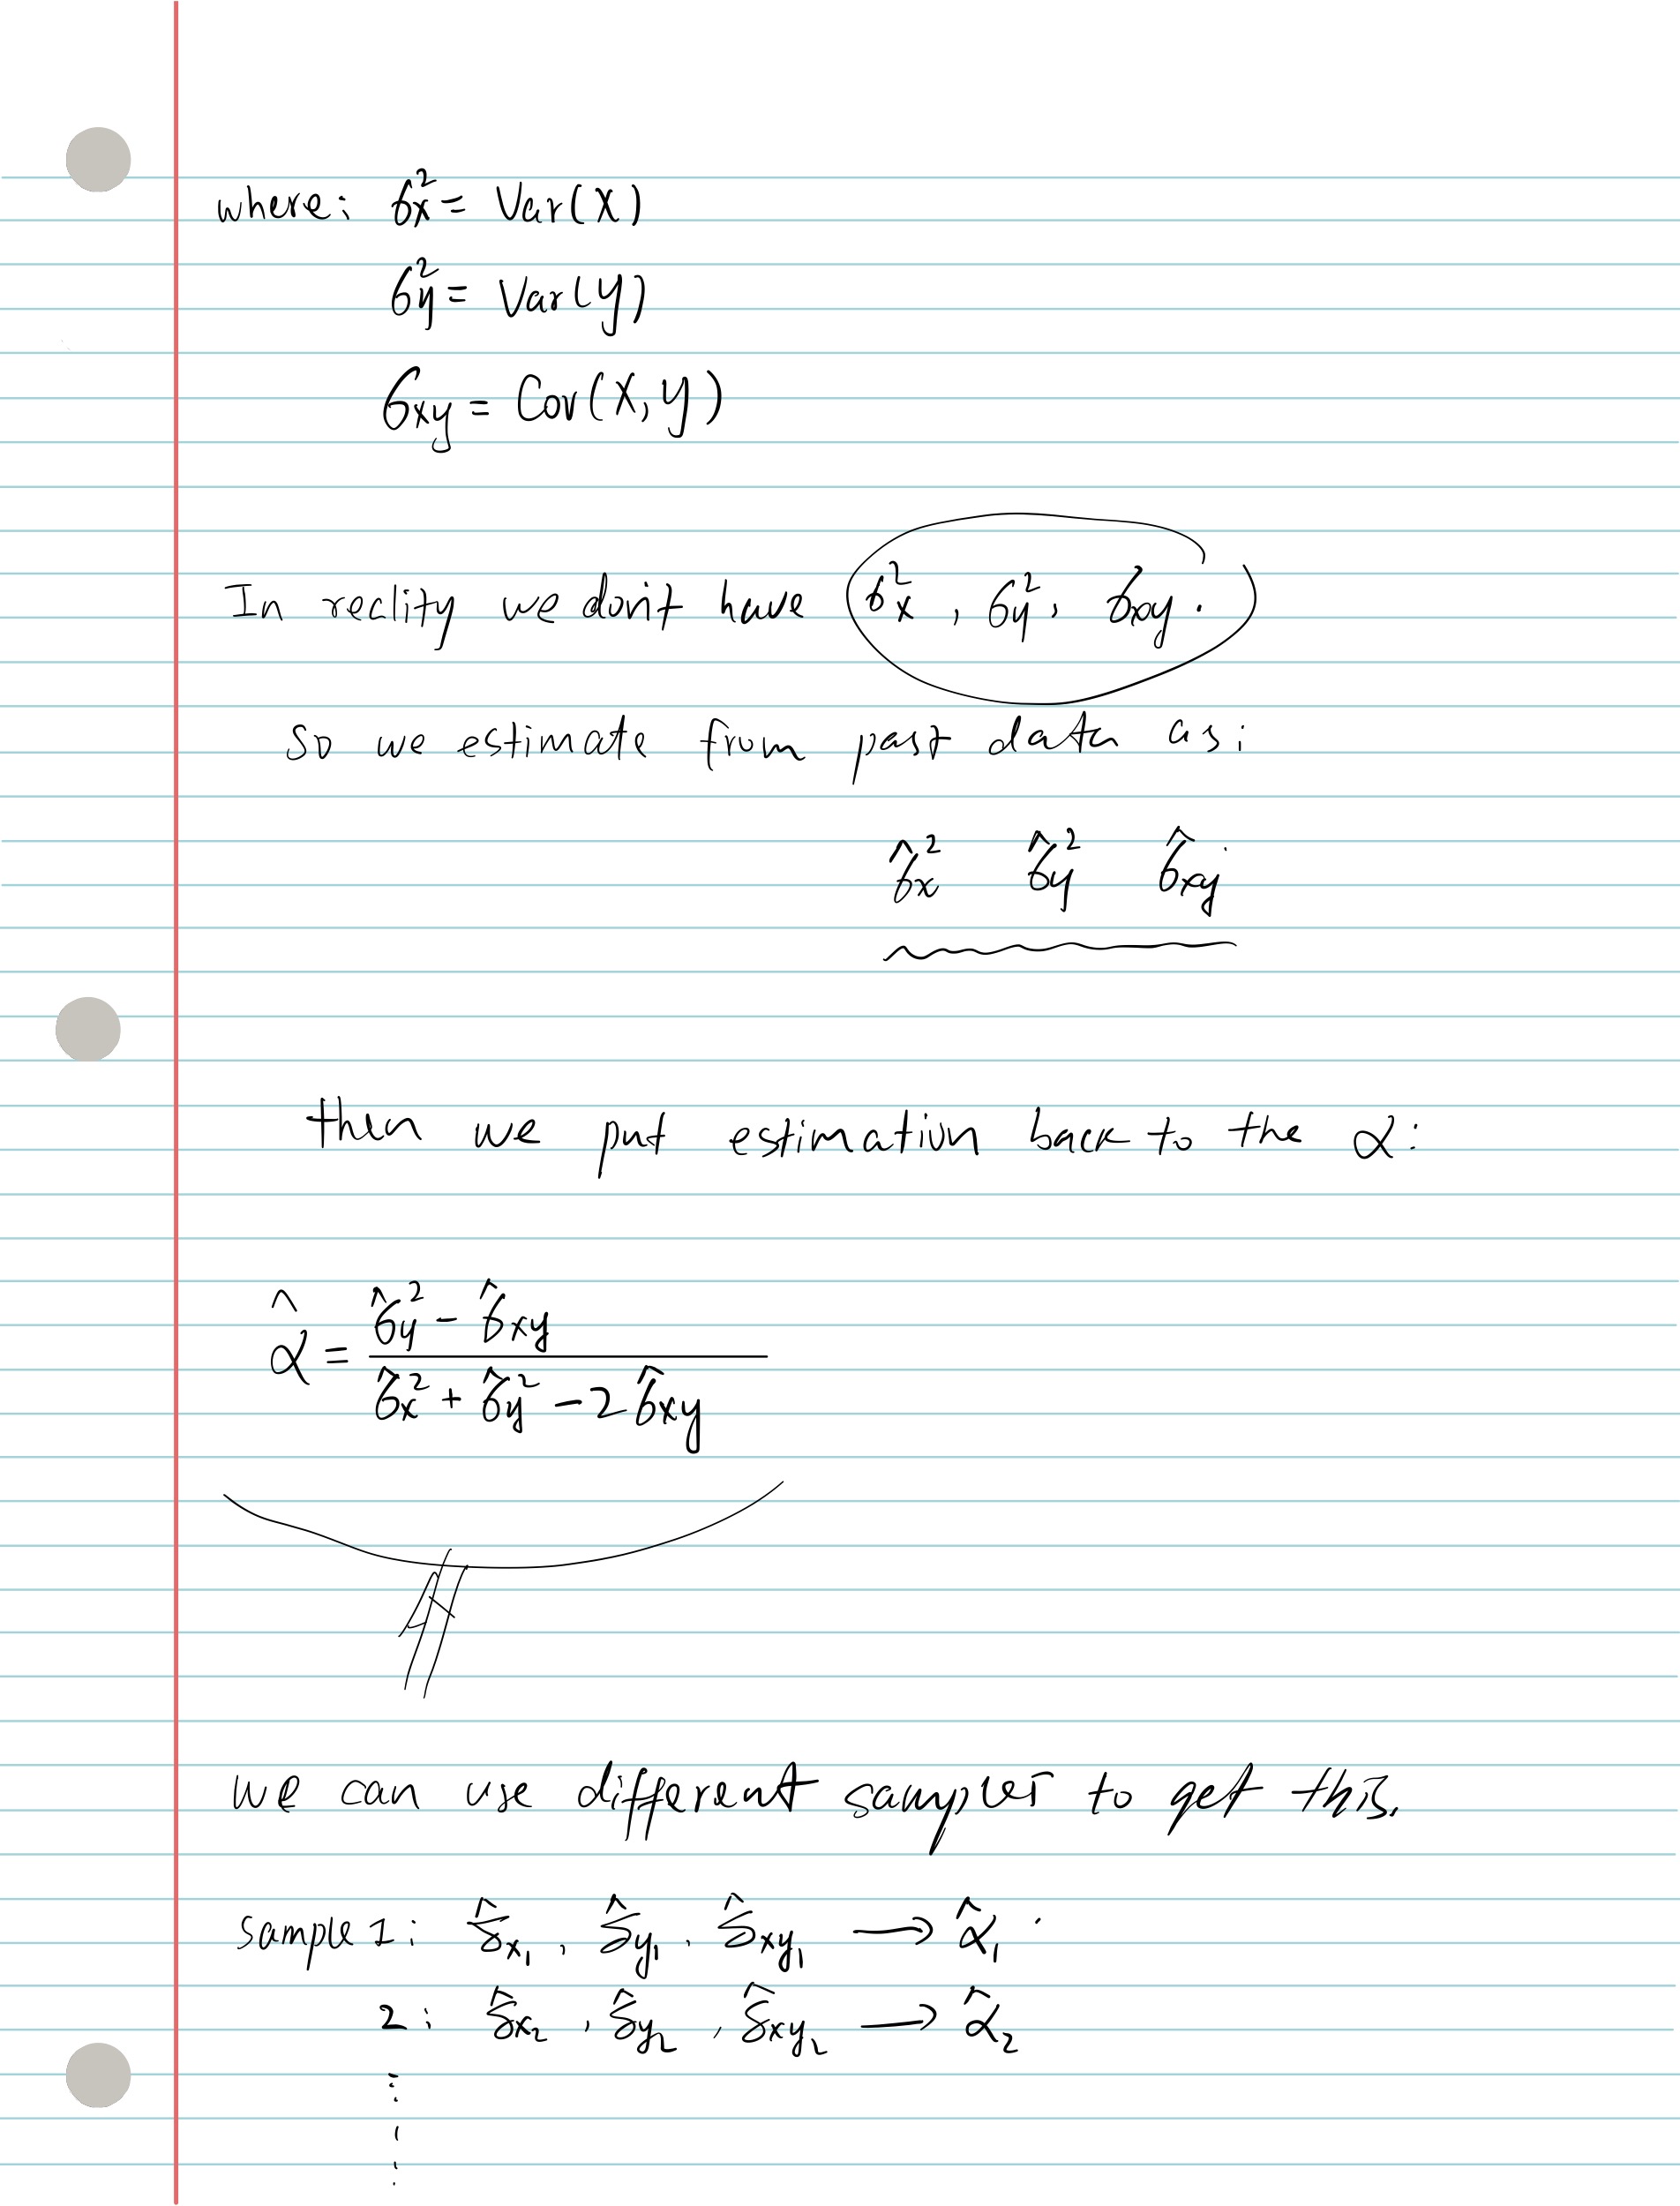 where: σx² = Var(X)
σy² = Var(Y)
σxy = Cov(X,Y)
In reality we don't have σx², σy², σxy.
So we estimate from past data as:
σ̂x² σ̂y² σ̂xy
then we put estimation back to the α:
α̂ = (σ̂y² - σ̂xy) / (σ̂x² + σ̂y² - 2σ̂xy)
we can use different samples to get this.
sample 1: σ̂x₁, σ̂y₁, σ̂xy₁ → α̂₁
2: σ̂x₂, σ̂y₂, σ̂xy₂ → α̂₂